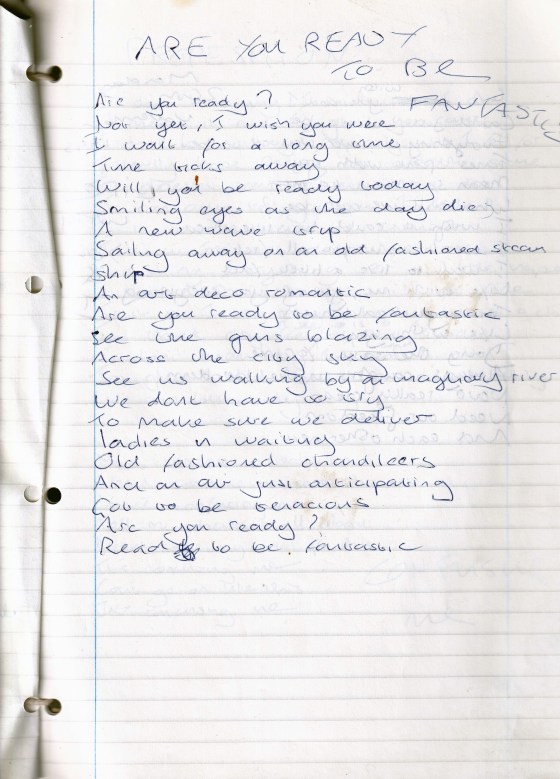 ARE YOU READY
TO BE
FANTASTIC
Are you ready?
Not yet, I wish you were
I wait for a long time
Time ticks away
Will, you be ready today
Smiling eyes as the day dies
A new wave trip
Sailing away on an old fashioned steam
ship
An art deco romantic
Are you ready to be fantastic
See the guns blazing
Across the city sky
See us walking by an imaginary river
We dont have to try
To make sure we deliver
Ladies in waiting
Old fashioned chandileers
And an art just anticipating
Got to be tenacious
Are you ready?
Ready to be fantastic